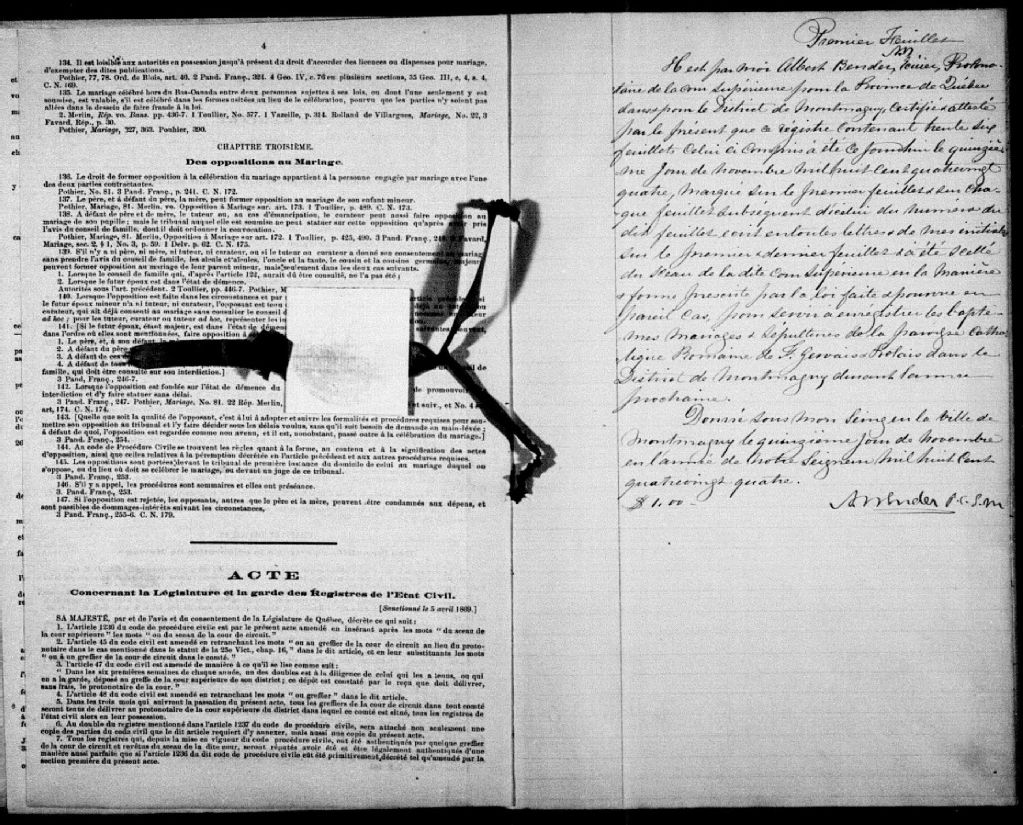 4
134. Il est loisible aux autorités en possession jusqu'à présent du droit d'accorder des licences ou dispenses pour mariage,
d'exempter des dites publications.
Pothier, 77, 78. Ord. de Blois, art. 40. 2 Pand. Franç., 324. 4 Geo. IV, c. 76 en plusieurs sections, 35 Geo. III, c, 4, s. 4,
C. N. 169.
135. Le mariage célébré hors du Bas-Canada entre deux personnes sujettes à ses lois, ou dont l'une seulement y est
soumise, est valable, s'il est célébré dans les formes usitées au lieu de la célébration, pourvu que les parties n'y soient pas
allées dans le dessein de faire fraude à la loi.
2. Merlin, Rép. vo. Bans. pp. 436-7. 1 Toullier, No. 577. 1 Vazeille, p. 314. Rolland de Villargues, Mariage, No. 22, 3
Favard, Rép., p. 30.
Pothier, Mariage, 227, 363. Pothier, 390.
CHAPITRE TROISIÈME.
Des oppositions au Mariage.
136. Le droit de former opposition à la célébration du mariage appartient à la personne engagée par mariage avec l'une
des deux parties contractantes.
Pothier, No. 81. 3 Pand. Franç., p. 241. C. N. 172.
137. Le père, et à défaut du père, la mère, peut former opposition au mariage de son enfant mineur.
Pothier, Mariage, 81. Merlin, vo. Opposition à Mariage sur art. 173. 1 Toullier, p. 489. C. N. 173.
138. A défaut de père et de mère, le tuteur, ou, au cas d'émancipation, le curateur peut aussi faire opposition au
mariage de son pupille; mais le tribunal auquel elle est soumise ne peut statuer sur cette opposition qu'après avoir pris
l'avis du conseil de famille, dont il doit ordonner la convocation.
Pothier, Mariage, 81. Merlin, Opposition à Mariage sur art. 172. 1 Toullier, p. 425, 490. 3 Pand. Franç., Favard,
Mariage, sec. 2, § 1, No. 3, p. 59. 1 Delv. p. 62. C. N. 175.
139. S'il n'y a ni père, ni mère, ni tuteur, ni curateur, ou si le tuteur ou curateur a donné son consentement au mariage
sans prendre l'avis du conseil de famille, les aïeuls et aïeules, l'oncle et la tante, le cousin et la cousine germains, majeurs
peuvent former opposition au mariage de leur parent mineur, mais seulement dans les deux cas suivants.
1. Lorsque le conseil de famille qui, d'après l'article 122, aurait dû être consulté, ne l'a pas été;
2. Lorsque le futur époux est dans l'état de démence.
Autorités sous l'art. précédent. 2 Toullier, pp. 446-7. Pothier,
140. Lorsque l'opposition est faite dans les circonstances et par
le futur époux mineur n'a ni tuteur, ni curateur, l'opposant est tenu
curateur, qui ait déjà consenti au mariage sans consulter le conseil
ad hoc; pour les tuteur, curateur ou tuteur ad hoc, représenter les
141. [Si le futur époux, étant majeur, est dans l'état de
dans l'ordre où elles sont mentionnées, faire opposition à
1. Le père, et, à son défaut, la
2. A défaut du père
3. A défaut de ces
4. A défaut de tous
famille, qui doit être consulté sur son interdiction.]
3 Pand, Franç., 246-7.
142. Lorsque l'opposition est fondée sur l'état de démence du de promouvoir
interdiction et d'y faire statuer sans délai.
3 Pand. Franç., 247. Pothier, Mariage. No. 81. 22 Rép. Merlin, et suiv., et No. 4
art, 174. C. N. 174.
143. [Quelle que soit la qualité de l'opposant, c'est à lui à adopter et suivre les formalités et procédures requises pour sou-
mettre son opposition au tribunal et l'y faire décider sous les délais voulus, sans qu'il soit besoin de demande en main-levée;
à défaut de quoi, l'opposition est regardée comme non avenu, et il est, nonobstant, passé outre à la célébration du mariage.]
3 Pand. Franç., 254.
144. Au code de Procédure Civile se trouvent les règles quant à la forme, au contenu et à la signification des actes
d'opposition, ainsi que celles relatives à la péremption décrétée en l'article précédent et aux autres procédures requises.
145. Les oppositions sont portées devant le tribunal de première instance du domicile de celui au mariage duquel on
s'oppose, ou du lieu où doit se célébrer le mariage, ou devant un juge de ce tribunal.
3 Pand. Franç., 253.
146. S'il y a appel, les procédures sont sommaires et elles ont préséance.
3. Pand. Franç., 253.
147. Si l'opposition est rejetée, les opposants, autres que le père et la mère, peuvent être condamnés aux dépens, et
sont passibles de dommages-intérêts suivant les circonstances,
3 Pand. Franç., 255-6. C. N. 179.
ACTE
Concernant la Législature et la garde des Registres de l'Etat Civil.
[Sanctionné le 5 avril 1869.]
SA MAJESTÉ, par et de l'avis et du consentement de la Législature de Québec, décrète ce qui suit:
1. L'article 1236 du code de procédure civile est par le présent acte amendé en insérant après les mots "du sceau de
la cour supérieure" les mots "ou du sceau de la cour de circuit."
2. L'article 45 du code civil est amendé en retranchant les mots "ou au greffier de la cour de circuit au lieu du proto-
notaire dans le cas mentionné dans le statut de la 25e Vict., chap. 16," dans le dit article, et en leur substituants les mots
"ou à un greffier de la cour de circuit dans le comté."
3. l'article 47 du code civil est amendé de manière à ce qu'il se lise comme suit:
"Dans les six premières semaines de chaque année, un des doubles est à la diligence de celui qui les a tenus, ou qui
en a la garde, déposé au greffe de la cour supérieure de son district; ce dépôt est constaté par le reçu que doit délivrer,
sans frais, le protonotaire de la cour."
4. L'article 48 du code civil est amendé en retranchant les mots "ou greffier" dans le dit article.
5. Dans les trois mois qui suivront la passation du présent acte, tous les greffiers de la cour de circuit dans tout comté
seront tenus de délivrer au protonotaire de la cour supérieure du district dans lequel ce comté est situé, tous les registres de
l'état civil alors en leur possession.
6. Au double du registre mentionné dans l'article 1237 du code de procédure civile, sera attaché non seulement une
copie des parties du code civil que le dit article requiert d'y annexer, mais aussi une copie du présent acte.
7. Tous les registres qui, depuis la mise en vigueur du code procédure civile, ont été authentiqués par quelque greffier
de la cour de circuit et revêtus du sceau de la dite cour, seront réputés avoir été et être légalement authentiqués d'une
manière aussi parfaite que si l'article 1236 du dit code de procédure civile eût été primitivement décrété tel qu'amendé par la
section première du présent acte.
Premier Feuillet
Il est par moi Albert Bender, Ecuier, Protono-
taire de la Cour Supérieure pour la Province de Québec
dans & pour le District de Montmagny, certifié & attesté
par le présent que ce régistre contenant trente six
feuillets celui ci compris a été ce jourd'hui le quinziè-
me Jour de Novembre mil huit cent quatrevingt
quatre, marqué sur le premier feuillet & sur cha-
que feuillet subsequent d'icelui du numéro du
dit feuillet écrit en toutes lettres & de mes initiales
sur le premier & dernier feuillet & a été scellé
du Sceau de la dite Cour Supérieure en la Manière
& forme prescrite par la loi faite & pourvue en
pareil Cas, pour servir à enregistrer les baptê-
mes mariages & Sépultures de la paroisse Catho-
lique Romaine de St Gervais & Protais dans le
District de Montmagny durant l'année
prochaine.
Donné sous mon Seing en la Ville de
Montmagny le quinzième jour de Novembre
en l'année de notre Seigneur Mil huit cent
quatrevingt quatre.
$1.00 A Bender P.C.S.M